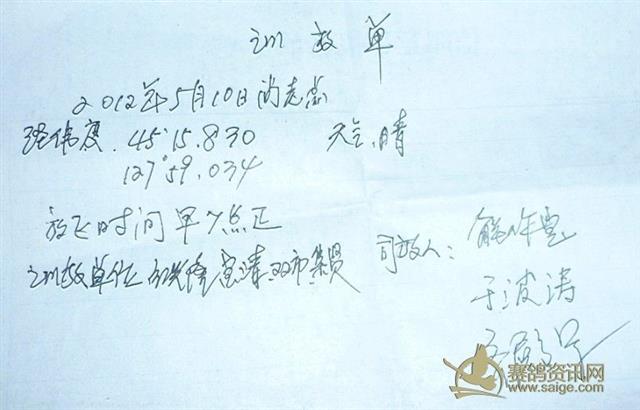 训放单
2012年5月10日尚志
经纬度.45°15.830 天气.晴
127°59.034
放飞时间早7点正
训放单位 宝清.双市.集贤 司放人:
于波涛
赛鸽资讯网
www.saige.com